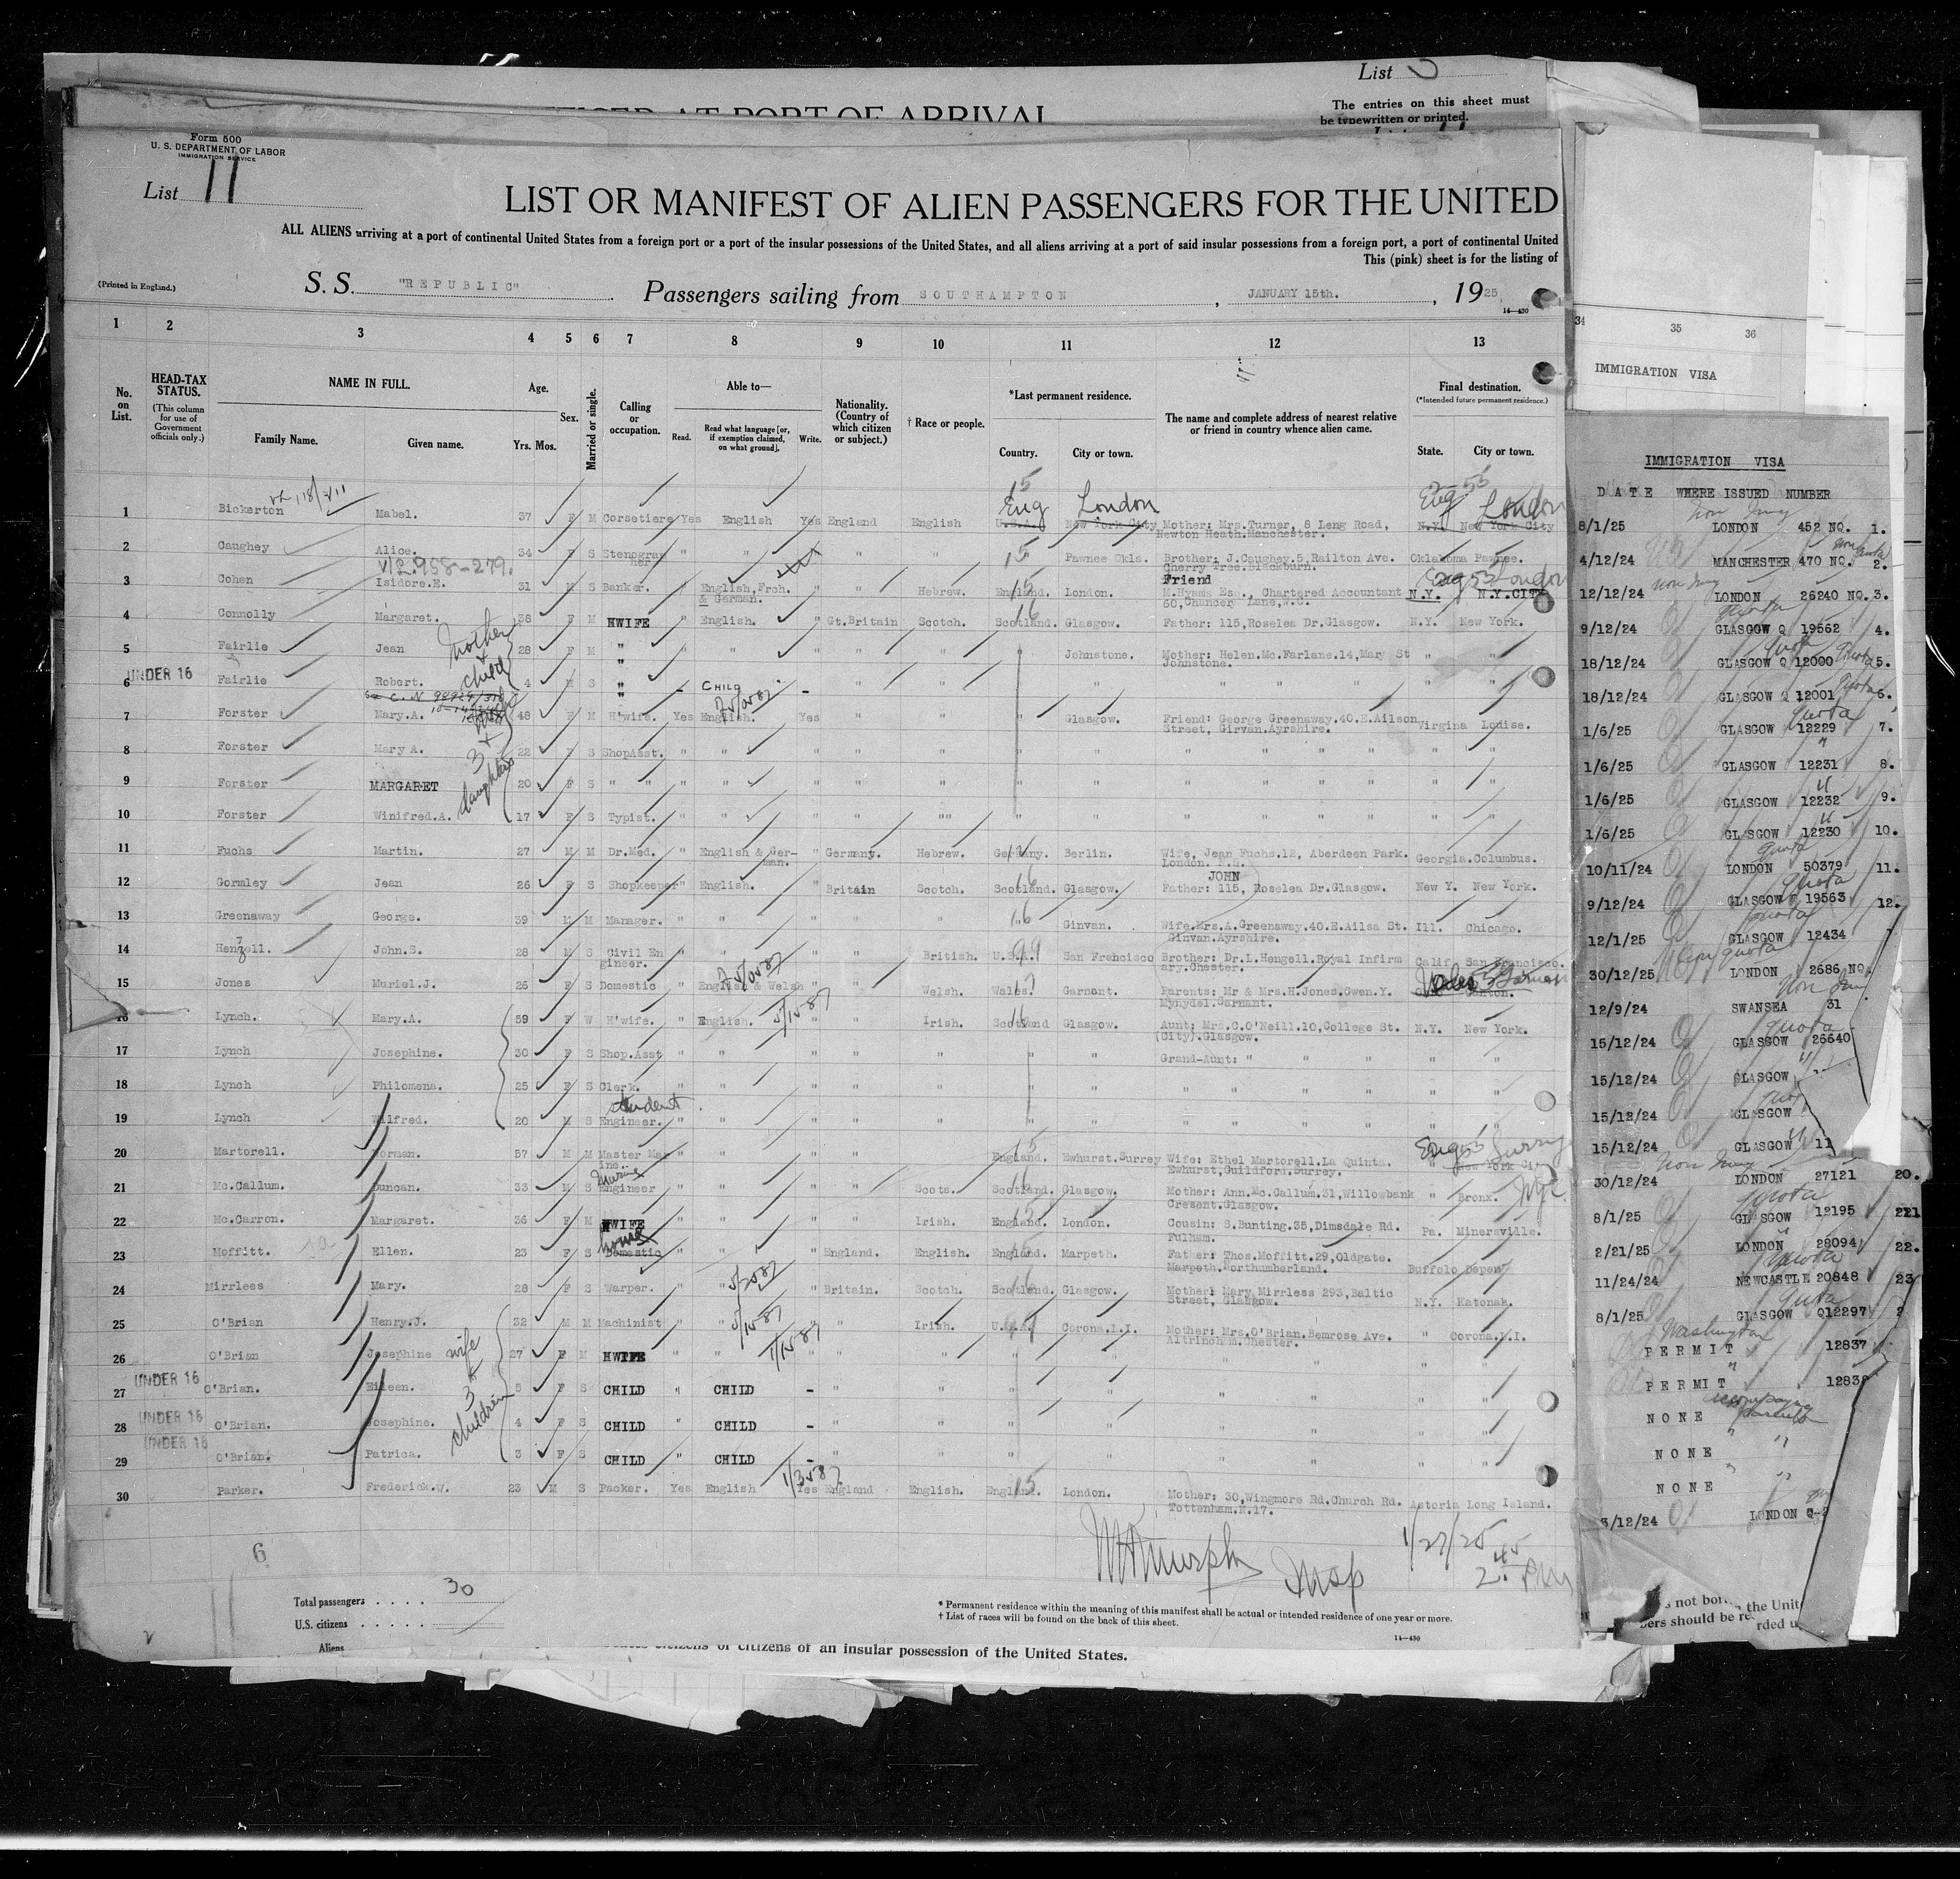 List
OFFICER AT PORT OF ARRIVAL
The entries on this sheet must
be typewritten or printed.
Form 500
U. S. DEPARTMENT OF LABOR
IMMIGRATION SERVICE
List 11
LIST OR MANIFEST OF ALIEN PASSENGERS FOR THE UNITED
ALL ALIENS arriving at a port of continental United States from a foreign port or a port of the insular possessions of the United States, and all aliens arriving at a port of said insular possessions from a foreign port, a port of continental United
This (pink) sheet is for the listing of
(Printed in England.)
S. S. "REPUBLIC" Passengers sailing from SOUTHAMPTON, JANUARY 15th., 1925
14—430
1 2 3 4 5 6 7 8 9 10 11 12 13
No. on List.
HEAD-TAX STATUS.
(This column for use of Government officials only.)
NAME IN FULL.
Family Name. Given name.
Age.
Yrs. Mos.
Sex.
Married or single.
Calling or occupation.
Able to—
Read. Read what language [or, if exemption claimed, on what ground]. Write.
Nationality. (Country of which citizen or subject.)
† Race or people.
*Last permanent residence.
Country. City or town.
The name and complete address of nearest relative or friend in country whence alien came.
Final destination.
(*Intended future permanent residence.)
State. City or town.
34 35 36
IMMIGRATION VISA
IMMIGRATION VISA
DATE WHERE ISSUED NUMBER
15 Eng London Eng 55 London
1 Bickerton Mabel. 37 F M Corsetiere Yes English Yes England English U.S.A. New York City Mother: Mrs.Turner, 8 Leng Road, Newton Heath.Manchester. N.Y. New York City 8/1/25 LONDON 452 NQ. 1.
2 Caughey Alice. 34 F S Stenographer " " " " " 15 Pawnee Okla. Brother: J.Caughey.5,Railton Ave. Cherry Tree.Blackburn. Oklahoma Pawnee. 4/12/24 MANCHESTER 470 NQ. 2.
3 Cohen Isidore.E. 31 M S Banker. " English,Frch. & German. " " Hebrew. England. London. Friend M.Hyams Esq., Chartered Accountant 60,Chancery Lane,W.C. N.Y. N.Y.CITY 12/12/24 LONDON 26240 NQ. 3.
4 Connolly Margaret. 38 F M HWIFE " English. " Gt.Britain Scotch. Scotland. Glasgow. Father: 115,Roselea Dr.Glasgow. N.Y. New York. 9/12/24 GLASGOW Q 19562 4.
mother & child
5 Fairlie Jean 28 F M " " " " " " " Johnstone. Mother: Helen.Mc.Farlane.14,Mary St Johnstone. " " 18/12/24 GLASGOW Q 12000 5.
UNDER 16
6 Fairlie Robert. 4 M S " - CHILD - " " " " " " " " 18/12/24 GLASGOW Q 12001 6.
7 Forster Mary.A. 48 F M H'wife. Yes English. Yes " " " Glasgow. Friend: George Greenaway.40.E.Ailson Street, Girvan.Ayrshire. Virgina Louise. 1/6/25 GLASGOW 12229 7.
3 daughters
8 Forster Mary A. 22 F S ShopAsst. " " " " " " " " " " 1/6/25 GLASGOW 12231 8.
9 Forster MARGARET 20 F S " " " " " " " " " " " " 1/6/25 GLASGOW 12232 9.
10 Forster Winifred.A. 17 F S Typist. " " " " " " " " " " 1/6/25 GLASGOW 12230 10.
11 Fuchs Martin. 27 M M Dr.Med. " English & German. " Germany. Hebrew. Germany. Berlin. Wife, Jean Fuchs.12, Aberdeen Park. London. Georgia.Columbus. 10/11/24 LONDON 50379 11.
12 Gormley Jean 26 F S Shopkeeper " English. " Britain Scotch. Scotland. Glasgow. JOHN Father: 115, Roselea Dr.Glasgow. New Y. New York. 9/12/24 GLASGOW 19563 12.
13 Greenaway George. 39 M M Manager. " " " " " 16 Ginvan. Wife.Mrs.A.Greenaway.40.E.Ailsa St. Ginvan.Ayrshire. Ill. Chicago. 12/1/25 GLASGOW 12434
14 Henzell. John.S. 28 M S Civil Engineer. " " " " British. U.S.A. San Francisco Brother: Dr.L.Hengell.Royal Infirmary.Chester. Calif San Francisco. 30/12/25 LONDON 2686 NQ.
15 Jones Muriel.J. 26 F S Domestic " English & Welsh " " Welsh. Wales. Garnant. Parents: Mr & Mrs.H.Jones.Cwen.Y. Mynydel.Garnant. Canton. 12/9/24 SWANSEA 31
16 Lynch. Mary.A. 59 F W H'wife. " English. " " Irish. Scotland Glasgow. Aunt: Mrs.C.O'Neill.10,College St. (City).Glasgow. N.Y. New York. 15/12/24 GLASGOW 26640
17 Lynch Josephine. 30 F S Shop.Asst " " " " " " " Grand-Aunt: " " " " 15/12/24 GLASGOW
18 Lynch Philomena. 25 F S Clerk. " " " " " " " " " " 15/12/24 GLASGOW
student
19 Lynch Wilfred. 20 M S Engineer. " " " " " " " " " " 15/12/24 GLASGOW 11
20 Martorell. Norman. 57 M M Master Marine. " " " " England. Ewhurst.Surrey Wife: Ethel Martorell.La Quinta. Ewhurst,Guildford.Surrey. " New York City Eng Surrey 30/12/24 LONDON 27121 20.
21 Mc.Callum. Duncan. 33 M S Marine Engineer " " " " Scots. Scotland. Glasgow. Mother: Ann.Mc.Callum.31,Willowbank Cresent.Glasgow. " Bronx. NYC 8/1/25 GLASGOW 12195 21
22 Mc.Carron. Margaret. 36 F M HWIFE " " " " Irish. England. London. Cousin: S.Bunting.35,Dimsdale Rd. Fulham. Pa. Minersville. 2/21/25 LONDON 28094 22.
23 Moffitt. Ellen. 23 F S Domestic " " " England. English. England. Marpeth. Father: Thos.Moffitt.29,Oldgate. Marpeth.Northumberland. Buffolo Depew 11/24/24 NEWCASTLE 20848 23
24 Mirrlees Mary. 28 F S Warper. " " " Britain. Scotch. Scotland. Glasgow. Mother: Mary Mirrless 293,Baltic Street, Glasgow. N.Y. Katonah. 8/1/25 GLASGOW Q12297
25 O'Brian Henry.J. 32 M M Machinist " " " " Irish. U.S.A. Corona.L.I. Mother: Mrs.O'Brian.Bemrose Ave. Altrincham.Chester. " Corona.L.I. Washington PERMIT 12837
wife & 3 children
26 O'Brian Josephine 27 F M HWIFE " " " " " " " " " " PERMIT 1283
UNDER 16
27 O'Brian. Eileen. 5 F S CHILD " CHILD - " " " " " " " NONE accompany parents
UNDER 16
28 O'Brian. Josephine. 4 F S CHILD " CHILD - " " " " " " " NONE " "
UNDER 16
29 O'Brian. Patrica. 3 F S CHILD " CHILD - " " " " " " " NONE " "
30 Parker. Frederick.W. 23 M S Packer. Yes English Yes England English. England. London. Mother: 30,Wingmore Rd.Church Rd. Tottenham.N.17. Astoria Long Island. 3/12/24 LONDON Q-2
1/27/25
2.45 PM
Insp
6
Total passengers . . . . 30
U.S. citizens . . . . .
Aliens
* Permanent residence within the meaning of this manifest shall be actual or intended residence of one year or more.
† List of races will be found on the back of this sheet.
14—430
citizens or citizens of an insular possession of the United States.